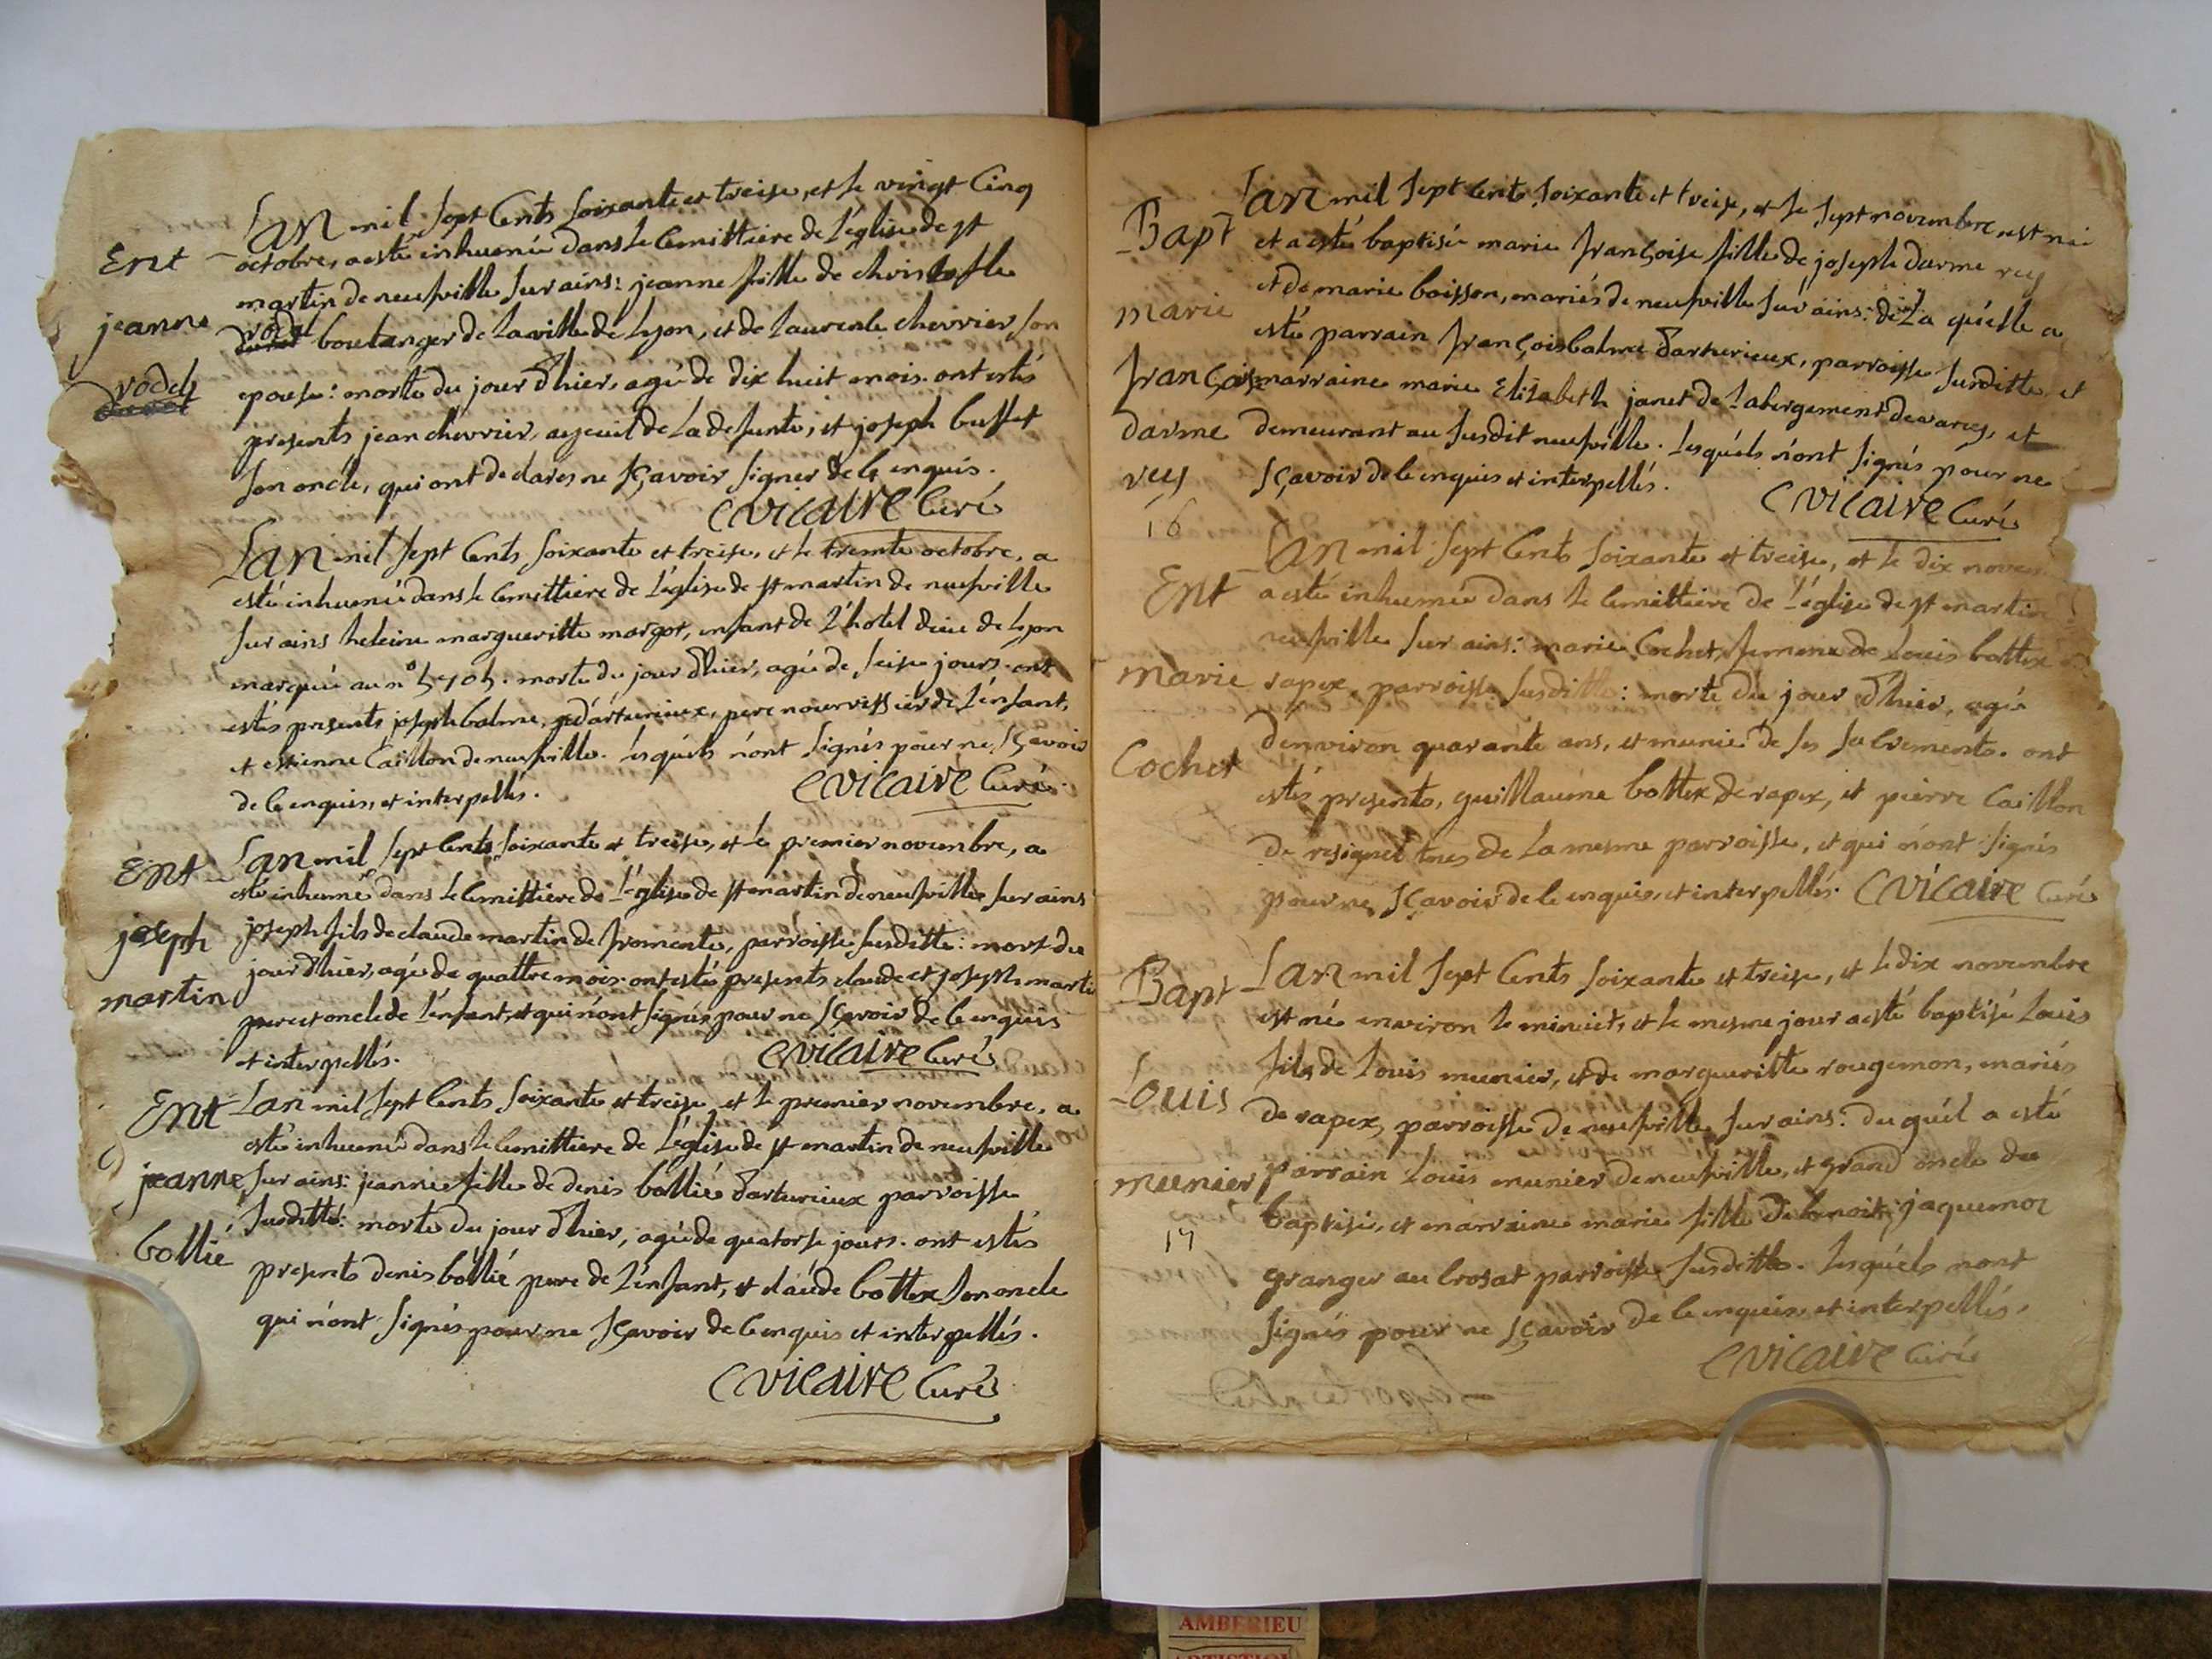 Ent
jeanne
rodet
Lan mil sept Cents soixante et treise, et le vingt Cinq
octobre, a esté inhumée dans le Cemittiere de l'église de st
martin de neufville sur ains: jeanne fille de christofle
rodet boulanger de la ville de Lyon, et de laurence chevrier son
epouse: morte du jour d'hier, agée de dix huit mois. ont estés
presents jean chevrier, ayeuil de la defunte, et joseph buffet
son oncle, qui ont declarés ne sçavoir signer de ce enquis.
C vicaire Curé
Lan mil sept Cents soixante et treise, et le trente octobre, a
esté inhumée dans le Cemittiere de l'église de st martin de neufville
sur ains heleine margueritte margot, enfant de l'hotel dieu de Lyon
marquée au n° morte du jour d'hier, agée de seise jours. ont
estés presents joseph balme, d'arturieux, pere nourrissier de l'enfant,
et estienne Caillon de neufville. lesquels n'ont signés pour ne sçavoir
de ce enquis, et interpellés.
C vicaire Curé
Ent
joseph
martin
Lan mil sept Cents soixante et treise, et le premier novembre, a
esté inhumé dans le Cemittiere de l'église de st martin de neufville sur ains
joseph fils de claude martin de fromente, parroisse susditte: mort du
jour d'hier, agé de quattre mois. ont estés presents claude et joseph martin
pere et oncle de l'enfant, et qui n'ont signés pour ne sçavoir de ce enquis
et interpellés.
C vicaire Curé
Ent
jeanne
bollié
Lan mil sept Cents soixante et treise, et le premier novembre, a
esté inhumée dans le Cemittiere de l'église de st martin de neufville
sur ains: jeanne fille de denis bollié d'arturieux parroisse
susditte: morte du jour d'hier, agée de quatorse jours. ont estés
presents denis bollié pere de l'enfant, et claude bottex son oncle
qui n'ont signés pour ne sçavoir de ce enquis et interpellés.
C vicaire Curé
Bapt
marie
françoise
darme
rey
16
Lan mil sept Cents soixante et treise, et le sept novembre est née
et a esté baptisée marie françoise fille de joseph darme rey
et de marie boisson, mariés de neufville sur ains: de la quelle a
esté parrain françois balme d'arturieux, parroisse susditte, et
marraine marie Elizabeth janet de l'abergement de varey, et
demeurant au susdit neufville. lesquels n'ont signés pour ne
sçavoir de ce enquis et interpellés.
C vicaire Curé
Ent
marie
Cochet
Lan mil sept Cents soixante et treise, et le dix novem
a esté inhumée dans le Cemittiere de l'église de st martin
neufville sur ains: marie Cochet, femme de Louis bottex
rapex, parroisse susditte: morte du jour d'hier, agée
d'environ quarante ans, et munie de ses sacrements. ont
estés presents, guillaume bottex de rapex, et pierre Caillon
de resignel tous de la mesme parroisse, et qui n'ont signés
pour ne sçavoir de ce enquis, et interpellés. C vicaire Curé
Bapt
Louis
munier
17
Lan mil sept Cents soixante et treise, et le dix novembre
est né environ le minuit, et le mesme jour a esté baptisé Louis
fils de Louis munier, et de margueritte rougemon, mariés
de rapex, parroisse de neufville sur ains: du quel a esté
parrain Louis munier de neufville, et grand oncle du
baptisé, et marraine marie fille de benoit jaquemoz
granger au Crosat parroisse susditte. lesquels n'ont
signés pour ne sçavoir de ce enquis, et interpellés.
C vicaire Curé
AMBERIEU